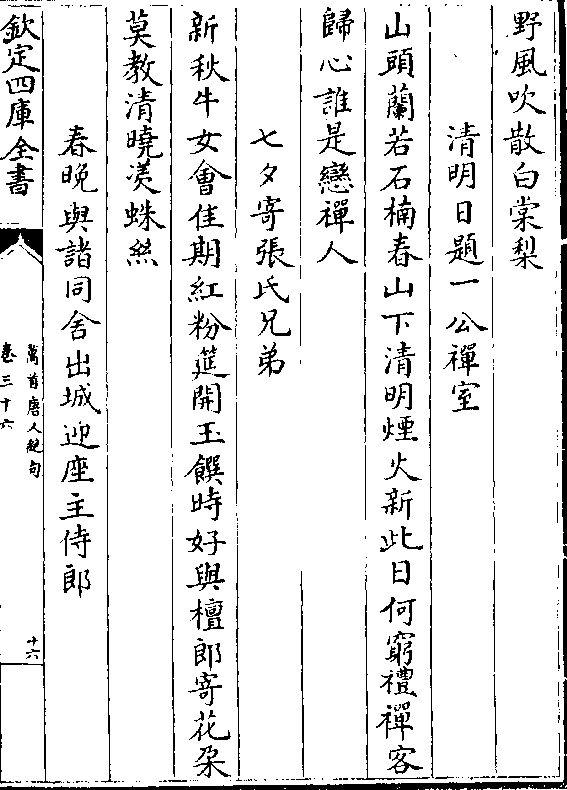 野風吹散白棠梨
清明日題一公禪室
山頭蘭若石楠春山下清明煙火新此日何窮禮禪客
歸心誰是戀禪人
七夕寄張氏兄弟
新秋牛女會佳期紅粉筵開玉饌時好與檀郎寄花朶
莫教清曉羨蛛絲
春晚與諸同舍出城迎座主侍郎
欽定四庫全書
萬首唐人絶句
卷三十六
十六